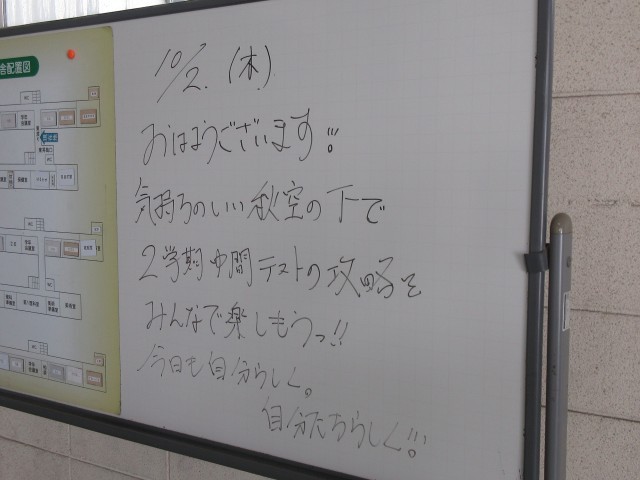 舎配置図
10/2.(木)
おはようございます!!!
気持ちのいい秋空の下で
2学期中間テストの攻略を
みんなで楽しもうっ!!
今日も自分らしく。
自分たちらしく!!!